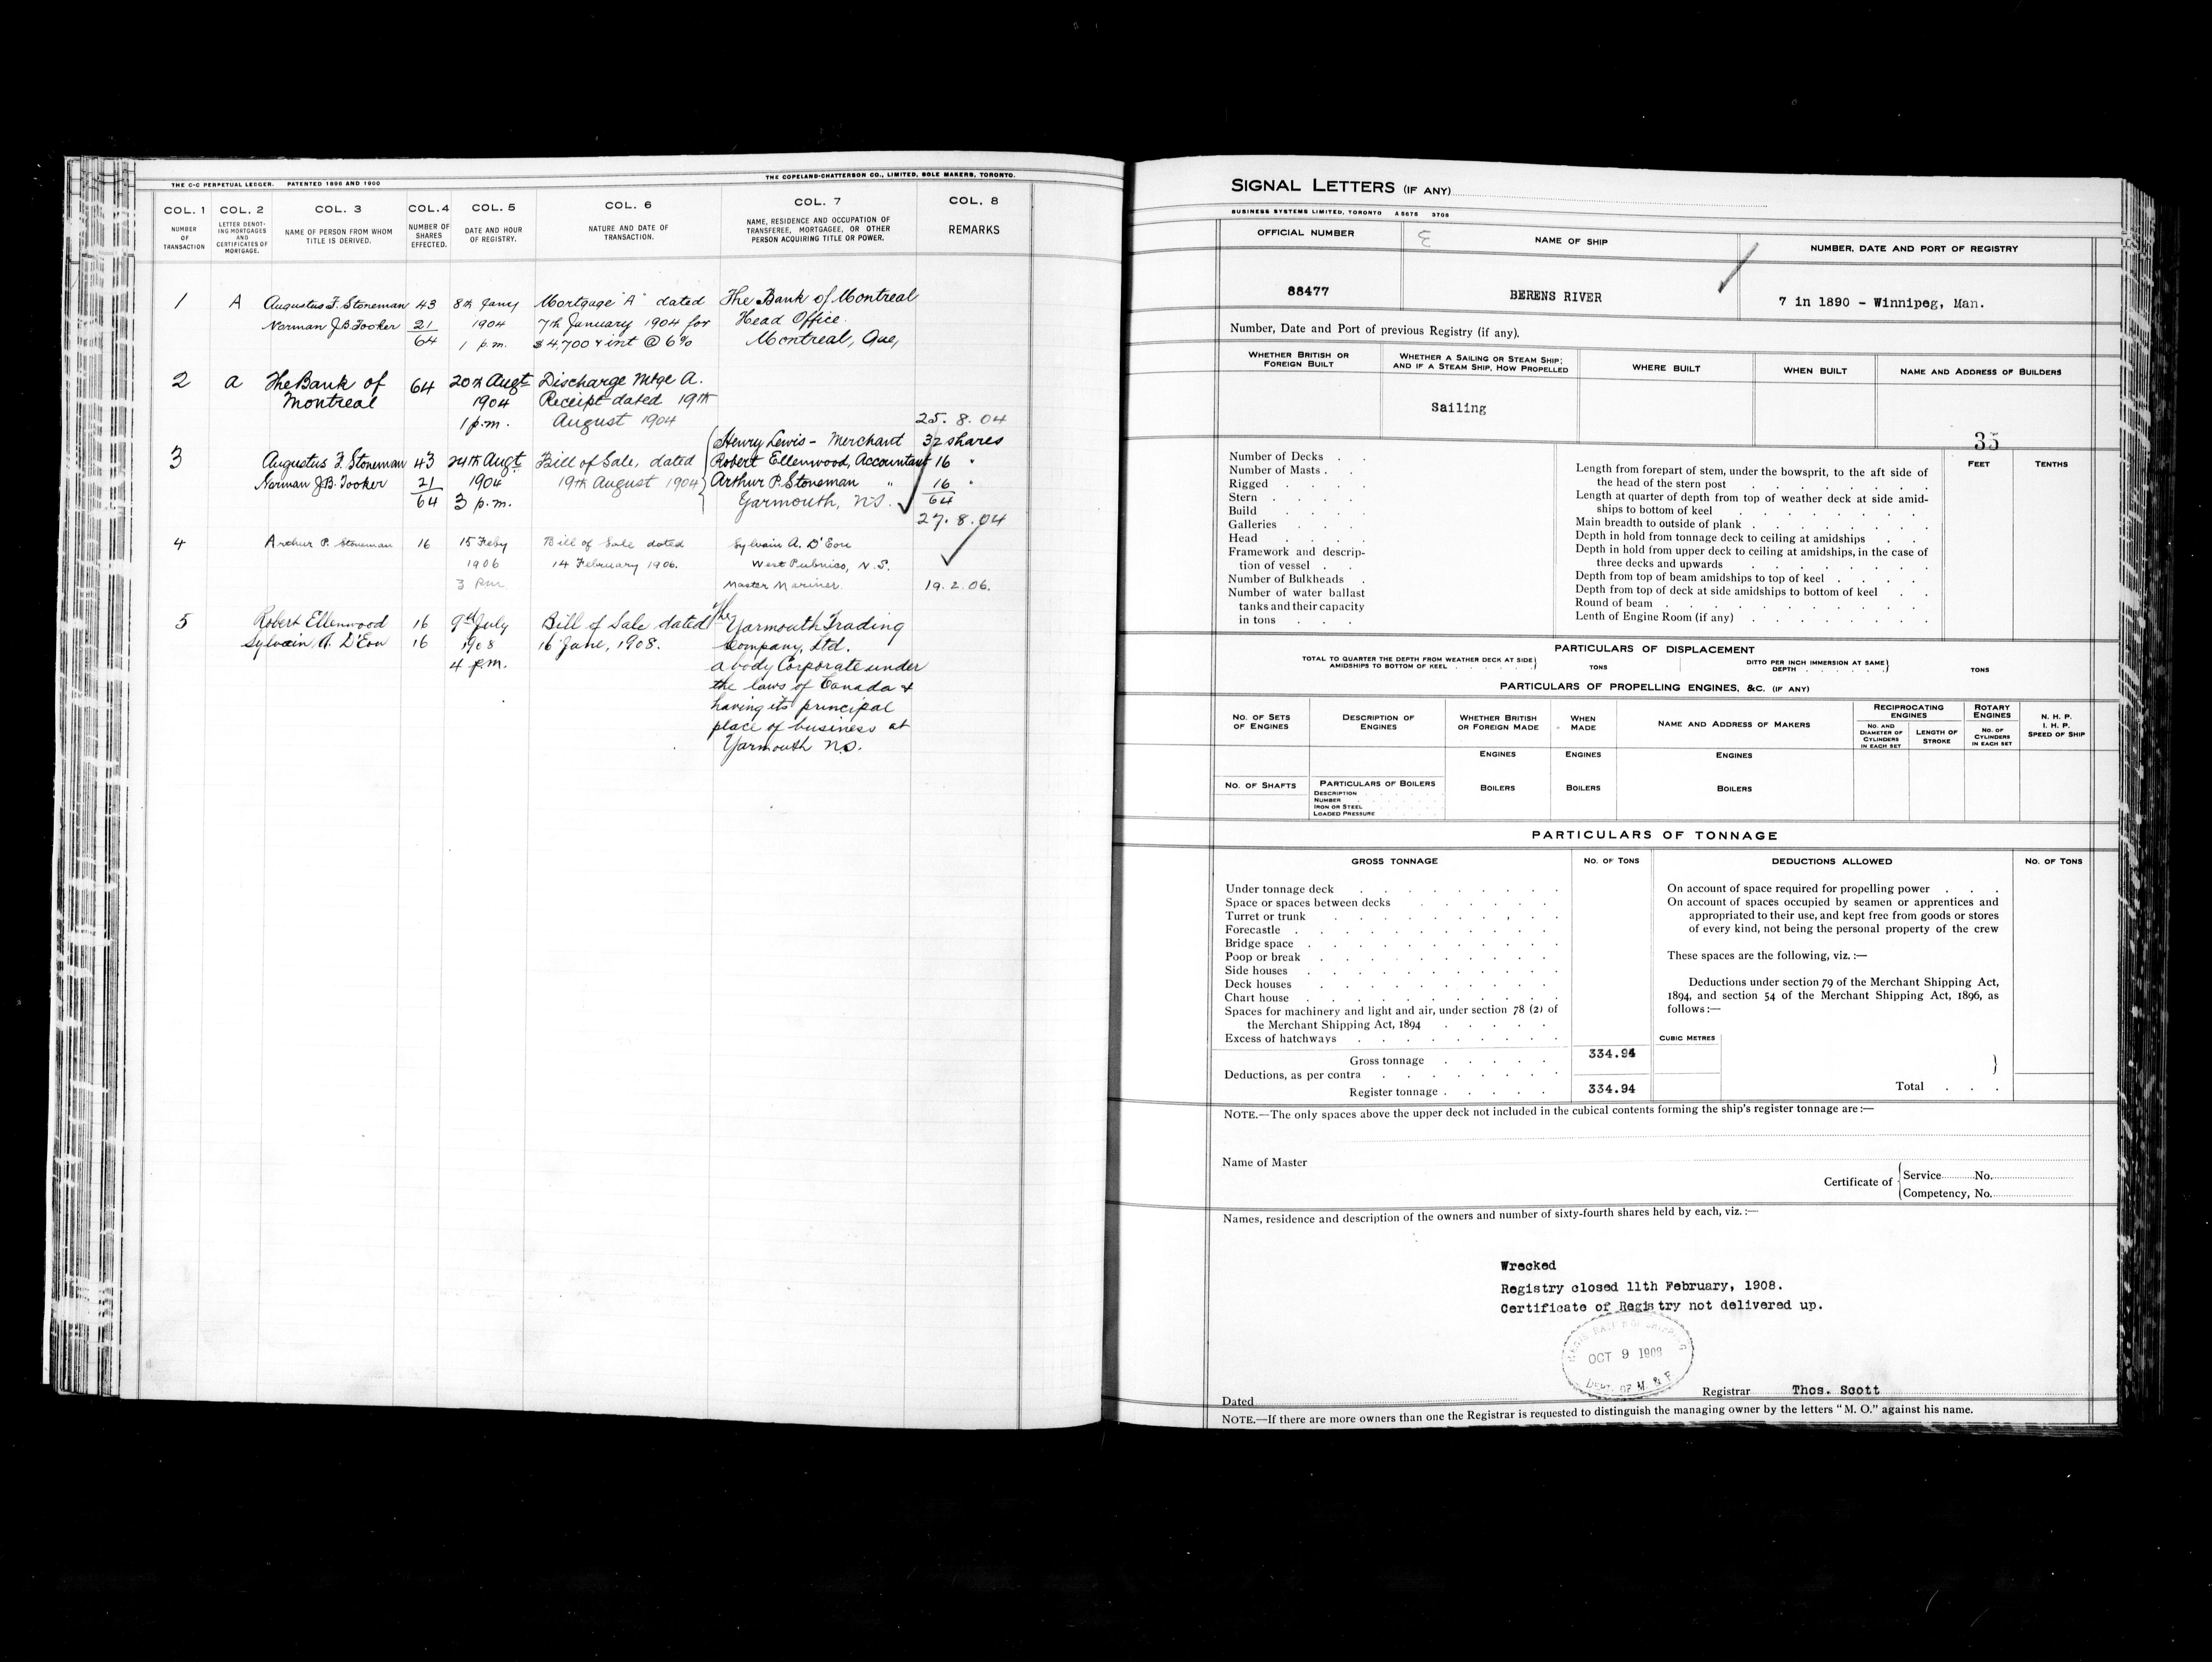 THE C-C PERPETUAL LEDGER. PATENTED 1896 AND 1900
THE COPELAND-CHATTERSON CO., LIMITED, SOLE MAKERS, TORONTO.
COL. 1 COL. 2 COL. 3 COL. 4 COL. 5 COL. 6 COL. 7 COL. 8
NUMBER OF TRANSACTION
LETTER DENOTING MORTGAGES AND CERTIFICATES OF MORTGAGE.
NAME OF PERSON FROM WHOM TITLE IS DERIVED.
NUMBER OF SHARES EFFECTED.
DATE AND HOUR OF REGISTRY.
NATURE AND DATE OF TRANSACTION.
NAME, RESIDENCE AND OCCUPATION OF TRANSFEREE, MORTGAGEE, OR OTHER PERSON ACQUIRING TITLE OR POWER.
REMARKS
1 A Augustus F. Stoneman 43 8th Jany Mortgage "A" dated The Bank of Montreal
Norman J.B. Tooker 21 1904 7th January 1904 for Head Office.
64 1 p.m. $4,700 & int @ 6% Montreal, Que,
2 a The Bank of 64 20th Augt Discharge Mtge A.
Montreal 1904 Receipt dated 19th
1 p.m. August 1904 25.8.04
Henry Lewis - Merchant 32 shares
3 Augustus F. Stoneman 43 24th Augt Bill of Sale, dated Robert Ellenwood, Accountant 16 "
Norman J.B. Tooker 21 1904 19th August 1904 Arthur P. Stoneman " 16 "
64 3 p.m. Yarmouth, N.S. 64
27.8.04
4 Arthur P. Stoneman 16 15 Feby Bill of Sale dated Sylvain A. D'Eon
1906 14 February 1906. West Pubnico, N.S.
3 P.M. Master Mariner. 19.2.06.
5 Robert Ellenwood 16 9th July Bill of Sale dated The Yarmouth Trading
Sylvain A. D'Eon 16 1908 16 June, 1908. Company, Ltd.
4 p.m. a body Corporate under
the laws of Canada &
having its principal
place of business at
Yarmouth N.S.
SIGNAL LETTERS (IF ANY)
BUSINESS SYSTEMS LIMITED, TORONTO A5675 3708
OFFICIAL NUMBER NAME OF SHIP NUMBER, DATE AND PORT OF REGISTRY
88477 BERENS RIVER 7 in 1890 - Winnipeg, Man.
Number, Date and Port of previous Registry (if any).
WHETHER BRITISH OR FOREIGN BUILT
WHETHER A SAILING OR STEAM SHIP; AND IF A STEAM SHIP, HOW PROPELLED
WHERE BUILT WHEN BUILT NAME AND ADDRESS OF BUILDERS
Sailing
35
FEET TENTHS
Number of Decks
Number of Masts
Rigged
Stern
Build
Galleries
Head
Framework and descrip-
tion of vessel
Number of Bulkheads
Number of water ballast
tanks and their capacity
in tons
Length from forepart of stem, under the bowsprit, to the aft side of
the head of the stern post
Length at quarter of depth from top of weather deck at side amid-
ships to bottom of keel
Main breadth to outside of plank
Depth in hold from tonnage deck to ceiling at amidships
Depth in hold from upper deck to ceiling at amidships, in the case of
three decks and upwards
Depth from top of beam amidships to top of keel
Depth from top of deck at side amidships to bottom of keel
Round of beam
Lenth of Engine Room (if any)
PARTICULARS OF DISPLACEMENT
TOTAL TO QUARTER THE DEPTH FROM WEATHER DECK AT SIDE AMIDSHIPS TO BOTTOM OF KEEL TONS
DITTO PER INCH IMMERSION AT SAME DEPTH TONS
PARTICULARS OF PROPELLING ENGINES, &C. (IF ANY)
NO. OF SETS OF ENGINES
DESCRIPTION OF ENGINES
WHETHER BRITISH OR FOREIGN MADE
WHEN MADE
NAME AND ADDRESS OF MAKERS
RECIPROCATING ENGINES
NO. AND DIAMETER OF CYLINDERS IN EACH SET
LENGTH OF STROKE
ROTARY ENGINES
NO. OF CYLINDERS IN EACH SET
N. H. P.
I. H. P.
SPEED OF SHIP
ENGINES ENGINES ENGINES
NO. OF SHAFTS PARTICULARS OF BOILERS BOILERS BOILERS BOILERS
DESCRIPTION
NUMBER
IRON OR STEEL
LOADED PRESSURE
PARTICULARS OF TONNAGE
GROSS TONNAGE NO. OF TONS DEDUCTIONS ALLOWED NO. OF TONS
Under tonnage deck
Space or spaces between decks
Turret or trunk
Forecastle
Bridge space
Poop or break
Side houses
Deck houses
Chart house
Spaces for machinery and light and air, under section 78 (2) of
the Merchant Shipping Act, 1894
Excess of hatchways
Gross tonnage 334.94
Deductions, as per contra
Register tonnage 334.94
On account of space required for propelling power
On account of spaces occupied by seamen or apprentices and
appropriated to their use, and kept free from goods or stores
of every kind, not being the personal property of the crew
These spaces are the following, viz.:—
Deductions under section 79 of the Merchant Shipping Act,
1894, and section 54 of the Merchant Shipping Act, 1896, as
follows:—
CUBIC METRES
Total
NOTE.—The only spaces above the upper deck not included in the cubical contents forming the ship's register tonnage are:—
Name of Master
Certificate of
Service No.
Competency, No.
Names, residence and description of the owners and number of sixty-fourth shares held by each, viz.:—
Wrecked
Registry closed 11th February, 1908.
Certificate of Registry not delivered up.
OF SHIPPING
OCT 9 1908
DEPT. OF M. & F.
Dated
Registrar Thos. Scott
NOTE.—If there are more owners than one the Registrar is requested to distinguish the managing owner by the letters "M. O." against his name.